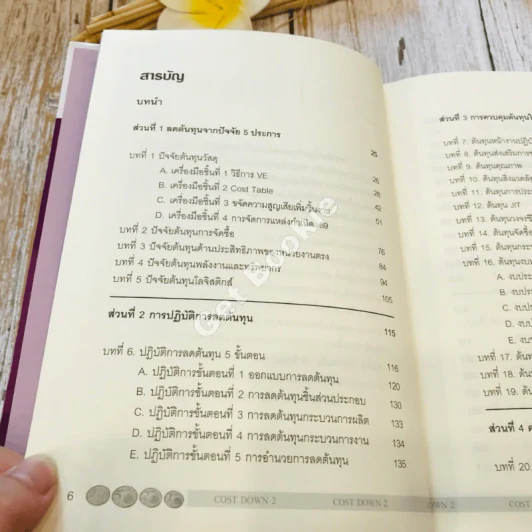 สารบัญ
บทนำ
ส่วนที่ 1 ลดต้นทุนจากปัจจัย 5 ประการ 25
บทที่ 1 ปัจจัยต้นทุนวัสดุ
A. เครื่องมือชิ้นที่ 1 วิธีการ VE 26
B. เครื่องมือชิ้นที่ 2 Cost Table 28
C. เครื่องมือชิ้นที่ 3 ขจัดความสูญเสียเพิ่มวินจาก 42
D. เครื่องมือชิ้นที่ 4 การจัดการแหล่งกำเนิด 51
บทที่ 2 ปัจจัยต้นทุนการจัดซื้อ
บทที่ 3 ปัจจัยต้นทุนด้านประสิทธิภาพของหน่วยงานตรง 76
บทที่ 4 ปัจจัยต้นทุนพลังงานและทรัพยากร 84
บทที่ 5 ปัจจัยต้นทุนโลจิสติกส์ 94
105
ส่วนที่ 2 การปฏิบัติการลดต้นทุน 115
บทที่ 6. ปฏิบัติการลดต้นทุน 5 ขั้นตอน 116
A. ปฏิบัติการขั้นตอนที่ 1 ออกแบบการลดต้นทุน 120
B. ปฏิบัติการขั้นตอนที่ 2 การลดต้นทุนชิ้นส่วนประกอบ 130
C. ปฏิบัติการขั้นตอนที่ 3 การลดต้นทุนกระบวนการผลิต 133
D. ปฏิบัติการขั้นตอนที่ 4 การลดต้นทุนกระบวนการงาน 134
E. ปฏิบัติการขั้นตอนที่ 5 การอำนวยการลดต้นทุน 135
6 COST DOWN 2 COST DOWN 2
ส่วนที่ 3 การควบคุมต้นทุน
บทที่ 7. ต้นทุนหน้างานปฏิบั
บทที่ 8. ต้นทุนส่งเสริมการ
บทที่ 9. ต้นทุนคุณภาพ
บทที่ 10. ต้นทุนสิ่งแวดล้อ
บทที่ 11. ต้นทุนการประ
บทที่ 12. ต้นทุน JIT
บทที่ 13. ต้นทุนวงจรชี
บทที่ 14. ต้นทุนจัดซื้อ
บทที่ 15. ต้นทุนกระ
บทที่ 16. ต้นทุนงบป
A. งบประ
B. งบป
C. งบป
D. งบ
E. งบ
บทที่ 17. ต้นท
บทที่ 18. ต้น
บทที่ 19. ต้
ส่วนที่ 4 ต
บทที่ 20.
COST DOWN 2 COST
Get Bookie